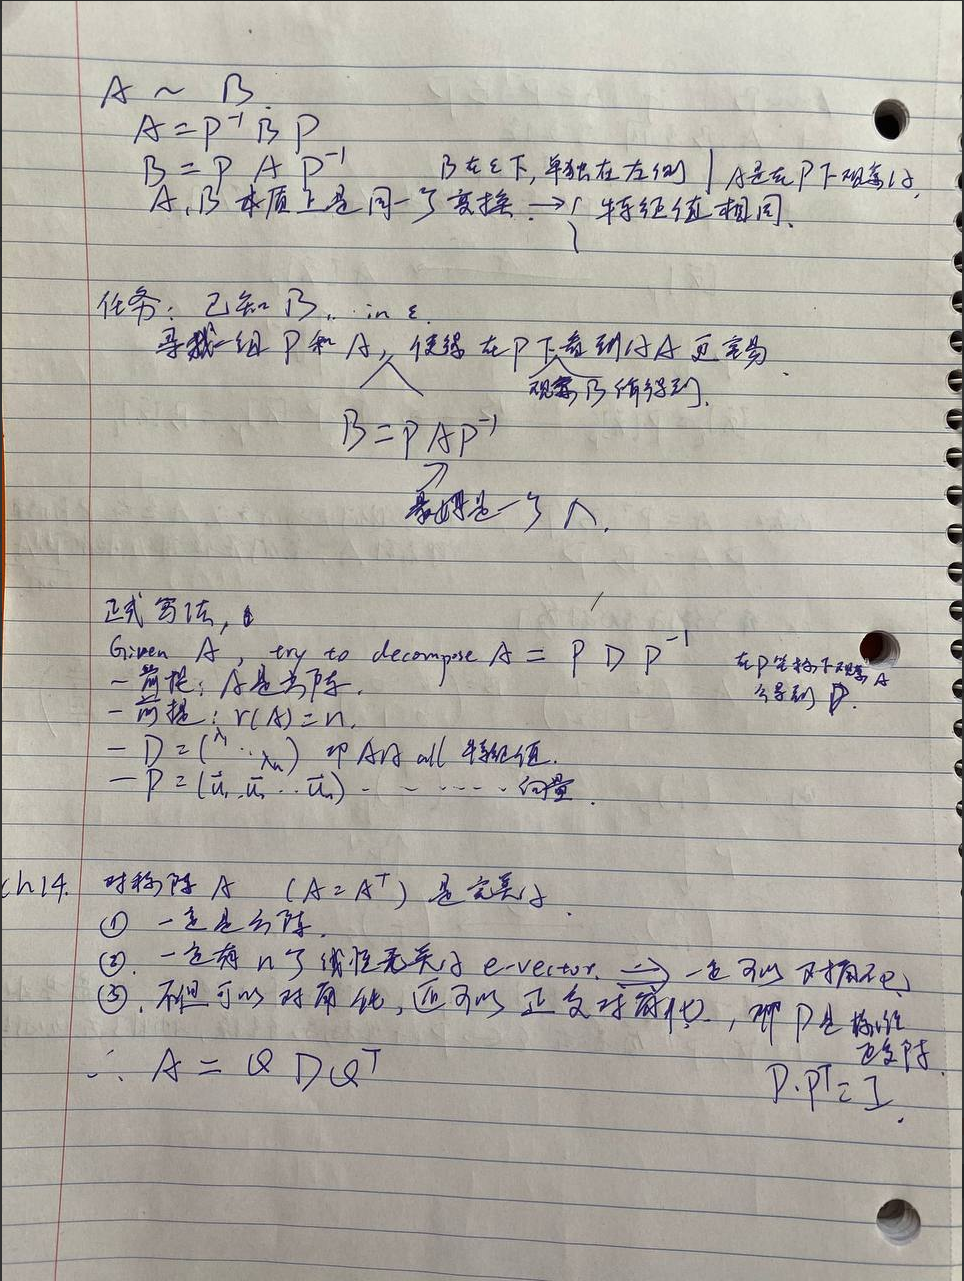 A ~ B.
A = P⁻¹ B P
B = P A P⁻¹ B在ε下，单独在左侧 | A是在P下观察的,
A、B 本质上是同一个变换. → { 特征值相同、
任务：已知B, .. in ε.
寻找一组 P 和 A，使得 在P下看到的A更容易.
观察B 值得到.
B = P A P⁻¹
最好是一个 Λ.
正式写法,
Given A, try to decompose A = P D P⁻¹
在P坐标下观察A
会得到 D.
- 前提：A是方阵.
- 前提：r(A) = n.
- D = (λ₁ ⋱ λₙ) 即 A的 all 特征值.
- P = (u⃗₁ u⃗₁ ... u⃗ₙ) - - - .... 向量.
ch14. 对称阵 A (A = Aᵀ) 是完美的.
① 一定是方阵.
②. 一定有 n个线性无关的 e-vector. ⇒ 一定可以对角化、
③. 不但可以对角化, 还可以正交对角化, 即 P是标准
正交阵.
∴ A = Q D Qᵀ
P·Pᵀ = I.